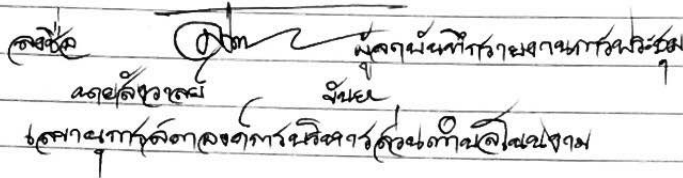 ลงชื่อ ผู้จดบันทึกรายงานการประชุม
นายสังวาลย์ จันยะ
เลขานุการสภาองค์การบริหารส่วนตำบลโนนงาม